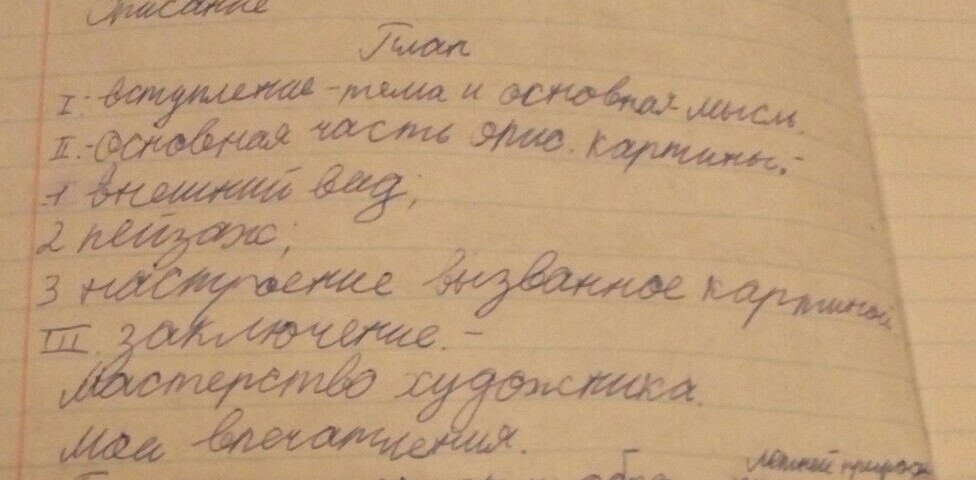 Описание
План
I. вступление - тема и основная мысль.
II. - Основная часть опис. картины:-
1 внешний вид;
2 пейзаж;
3 настроение вызванное картиной
III. заключение. -
Мастерство художника.
Мои впечатления.
летней природы